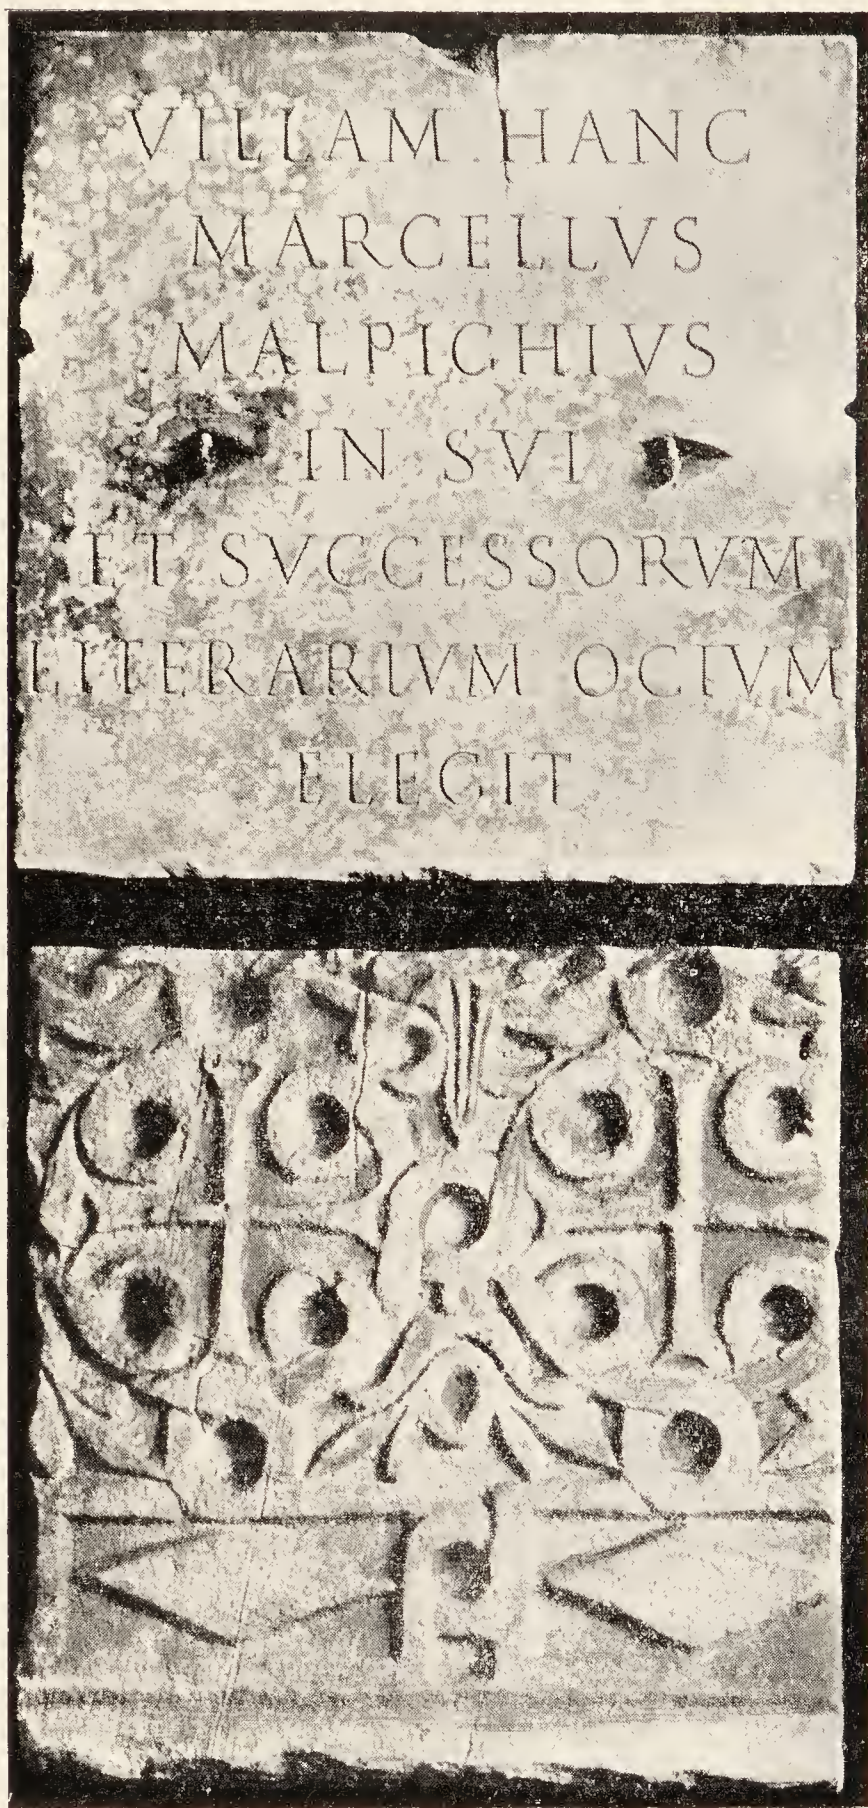 VILLAM HANC
MARCELLVS
MALPIGHIVS
IN SVI
ET SVCCESSORVM
LITERARIVM OCIVM
ELEGIT